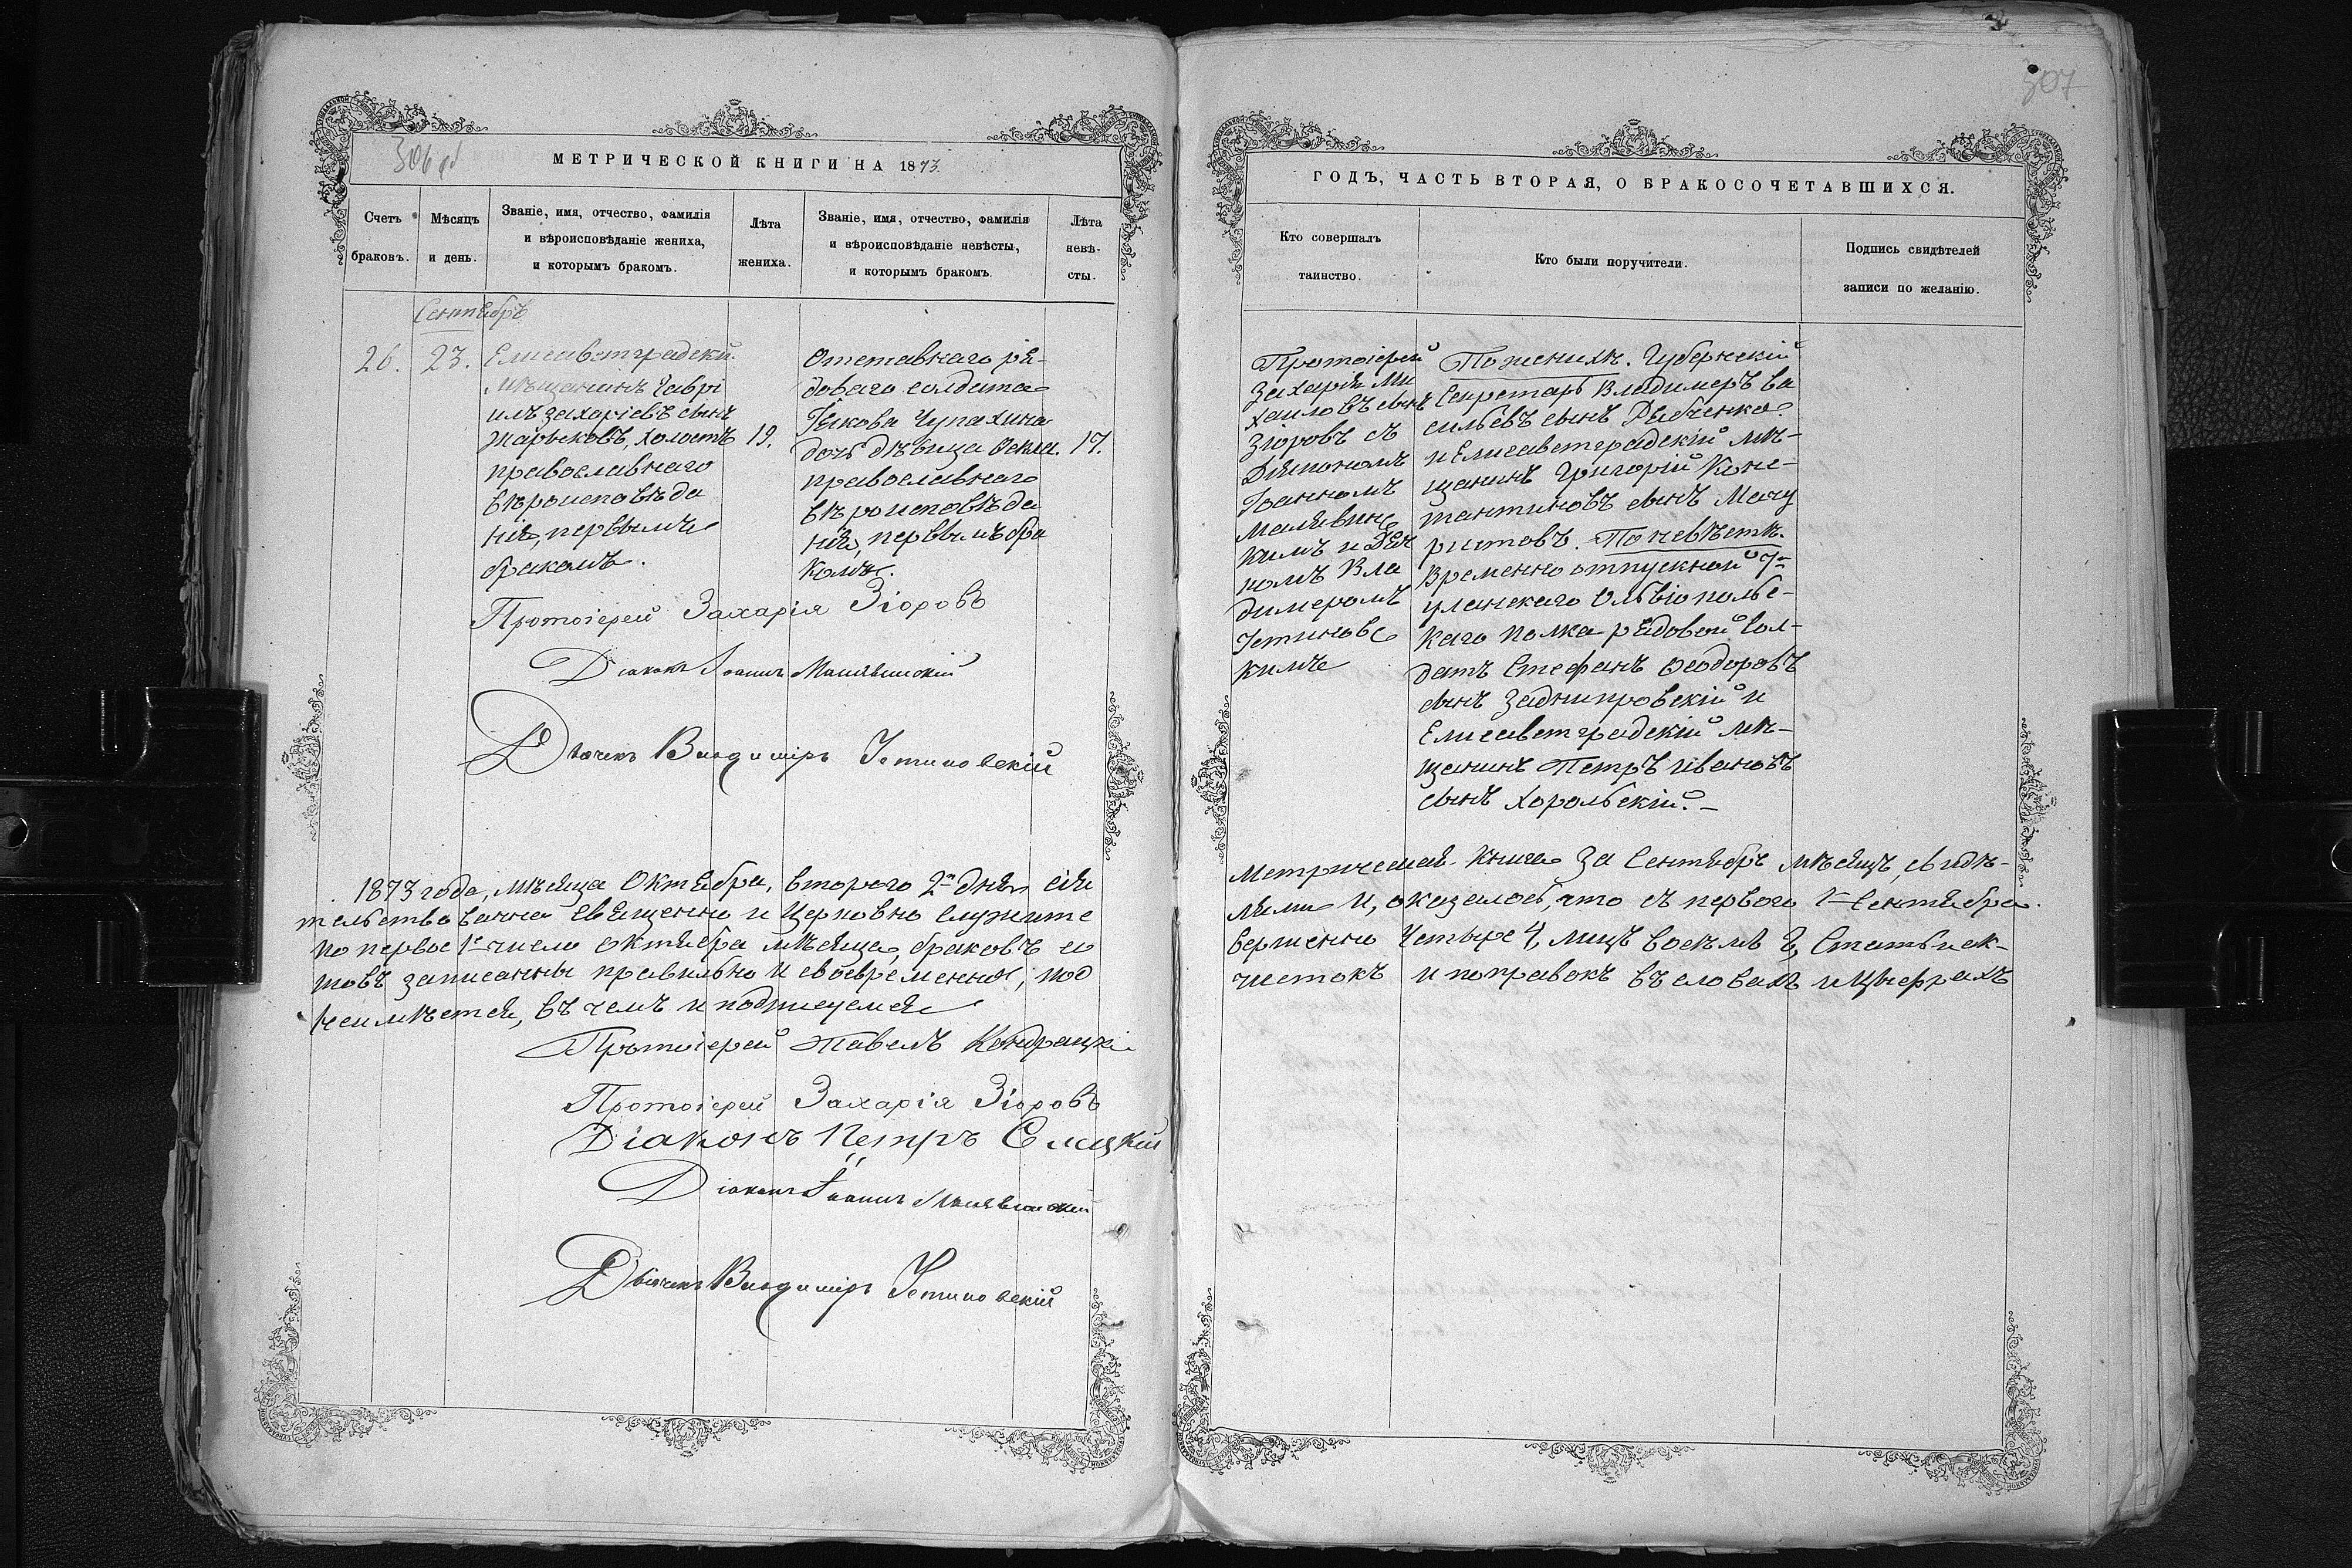 306 об
МЕТРИЧЕСКОЙ КНИГИ НА 1873.
Счетъ браковъ.
Мѣсяцъ и день.
Званіе, имя, отчество, фамилія
и вѣроисповѣданіе жениха,
и которымъ бракомъ.
Лѣта жениха.
Званіе, имя, отчество, фамилія
и вѣроисповѣданіе невѣсты,
и которымъ бракомъ.
Лѣта невѣ-
сты.
Сентябрь
26.
23.
Елисаветградскій
мѣщанинъ Гаврі
илъ Захаріевъ сынъ
Жарыковъ, холостъ
православнаго
вѣроисповѣда
нія, первымъ
бракомъ.
19.
Отставнаго ря-
доваго солдата
Іякова Чупахина
дочь дѣвица Фекла.
православнаго
вѣроисповѣда
нія, первымъ бра
комъ.
17.
Протоіерей Захарія Зіоровъ
Діаконъ Іоаннъ Малявинскій
Дьячекъ Владиміръ Устиновскій
1873 года, мѣсяца Октября, второго 2го дня сія
тельствованна Священно и Церковно служите
по первое 1е число октября мѣсяца, браковъ со
товъ записанны правильно и своевременно, под
неимѣется, въ чемъ и подписуемся
Протоіерей Павелъ Кондрацкі
Протоіерей Захарія Зіоровъ
Діаконъ Петръ Слицкій
Діаконъ Іоаннъ Малявинскій
Дьячекъ Владиміръ Устиновскій
307
ГОДЪ, ЧАСТЬ ВТОРАЯ, О БРАКОСОЧЕТАВШИХСЯ.
Кто совершалъ
таинство.
Кто были поручители.
Подпись свидѣтелей
записи по желанію.
Протоіерей
Захарія Ми
хаиловъ сынъ
Зіоровъ съ
Діякономъ
Іоанномъ
Малявинс
кимъ и Дяч
комъ Вла
димеромъ
Устиновс
кимъ
По женихѣ. Губернскій
Секретарь Владимеръ Ва
сильевъ сынъ Рябченко
и Елисаветградскій мѣ-
щанинъ Григорій Конс-
тантиновъ сынъ Мачу
ритовъ. По невѣстѣ.
Временно отпускной 7го
уланскаго Ольвіопольс-
каго полка рядовой сол-
датъ Стефанъ Феодоровъ
сынъ Заднипровскій и
Елисаветградскій мѣ-
щанинъ Петръ Ивановъ
сынъ Хорольскій.
Метрическая книга за Сентябрь мѣсяцъ, свидѣ-
лями и, оказалось, что съ первого 1го Сентября
вершенно четыре 4, лицъ восемь 8, Статьи ак-
чистокъ и поправокъ въ словахъ и цыфрахъ